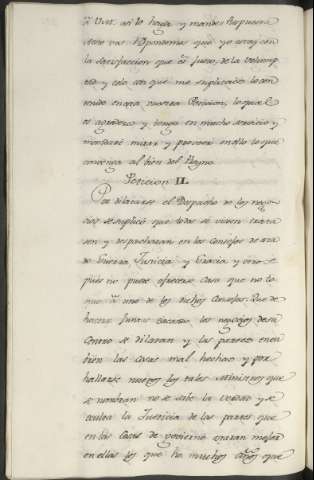 q̃ Vm. asi lo haga y mande: Respuesta
otras vas R̃pondemos que yo estoy con
la satisfaccion que es justo, de la voluntad
y celo con que me suplicades lo con
tenido en esta vuestra Peticion, lo qual
os agradezco y tengo en mucho servicio y
mandaré mirar y proveer en ello lo que
convenga al bien del Reyno
Peticion II.
Por dilatarse el Despacho de los nego
cios se suplicó que todos se viesen trata
sen y despacharan en los Consejos de esta
do Guerra, Justicia y Gracia y otros
pues no puede ofrecerse Cosa que no to
que á uno de los dichos Consejos. Que de
hacerse Juntas los negocios de su
Centro se dilatan y las partes
bien las Cosas mal hechas y por
hallarse nuevos los tales Ministros que
se nombran no se sabe la verdad y se
oculta la Justicia de las partes que
en las Casas de govierno estaran mejor
en ellas los que ha muchos años que